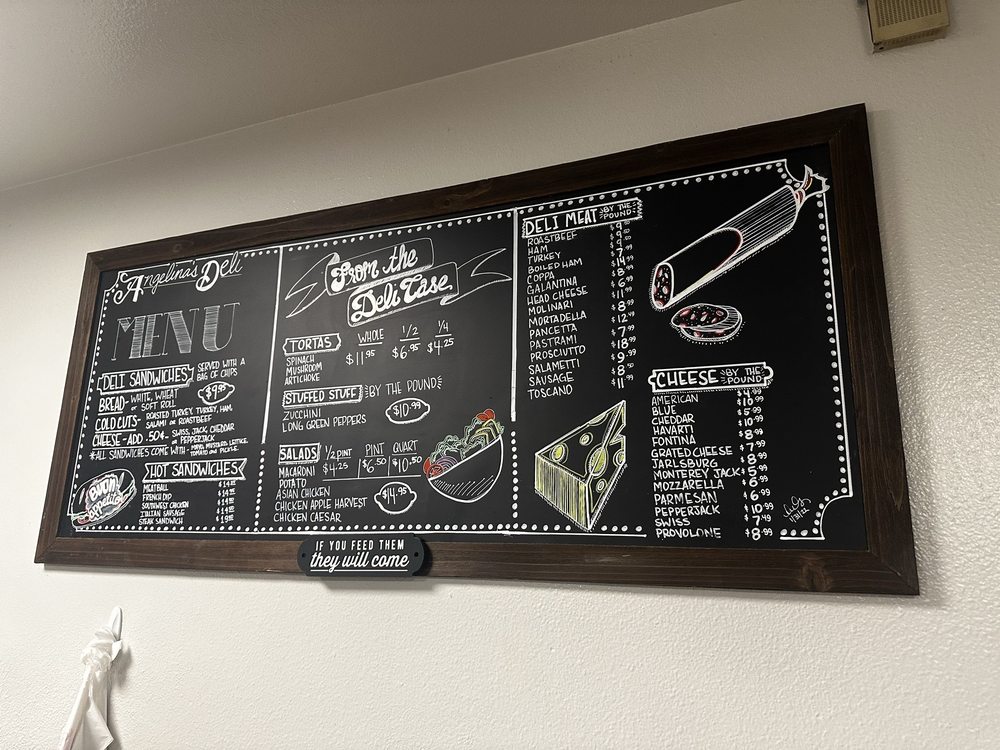 Angelina's Deli
MENU
DELI SANDWICHES SERVED WITH A BAG OF CHIPS
BREAD- WHITE, WHEAT or SOFT ROLL $9.95
COLD CUTS- ROASTED TURKEY, TURKEY, HAM, SALAMI or ROASTBEEF
CHEESE-ADD .50¢- SWISS, JACK, CHEDDAR or PEPPERJACK
*ALL SANDWICHES COME WITH- MAYO, MUSTARD, LETTUCE, TOMATO and PICKLE.
HOT SANDWICHES
MEATBALL
FRENCH DIP
SOUTHWEST CHICKEN
ITALIAN SAUSAGE
STEAK SANDWICH
BUON appetito
From the
Deli Case
WHOLE 1/2 1/4
TORTAS $11.95 $6.95 $4.25
SPINACH
MUSHROOM
ARTICHOKE
STUFFED STUFF BY THE POUND
ZUCCHINI $10.99
LONG GREEN PEPPERS
SALADS 1/2 PINT PINT QUART
MACARONI $4.25 $6.50 $10.50
POTATO
ASIAN CHICKEN $14.95
CHICKEN APPLE HARVEST
CHICKEN CAESAR
DELI MEAT BY THE POUND
ROASTBEEF
HAM
TURKEY
BOILED HAM $7.99
COPPA $14.99
GALANTINA $8.99
HEAD CHEESE $6.99
MOLINARI $11.99
MORTADELLA $8.99
PANCETTA $12.49
PASTRAMI $7.99
PROSCIUTTO $18.99
SALAMETTI $9.99
SAUSAGE $8.99
TOSCANO $11.99
CHEESE BY THE POUND
AMERICAN $4.99
BLUE $10.99
CHEDDAR $5.99
HAVARTI $10.99
FONTINA $8.99
GRATED CHEESE $7.99
JARLSBURG $8.99
MONTEREY JACK $5.99
MOZZARELLA $6.99
PARMESAN $6.99
PEPPERJACK $10.99
SWISS $7.49
PROVOLONE $8.99
IF YOU FEED THEM
they will come